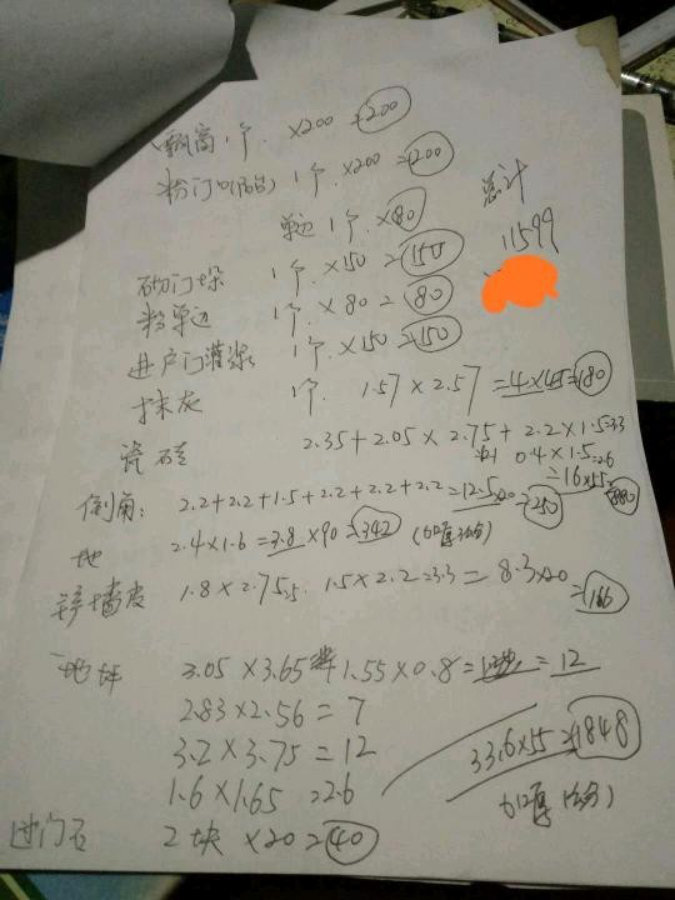 飘窗1个. ×200=200
粉门口(陷) 1个. ×200=200
单边1个. ×80
总计
11599
砌门垛 1个. ×150=150
粉单边 1个. ×80=80
进户门灌浆 1个. ×150=150
抹灰 1个. 1.57×2.57=4×45=180
瓷砖 2.35+2.05×2.75+2.2×1.5=33
0.4×1.5=2.6
=16×55=880
倒角: 2.2+2.2+1.5+2.2+2.2+2.2=12.5×20=250
地 2.4×1.6=3.8×90=342
墙皮 1.8×2.75=5. 1.5×2.2=3.3=8.3×20=166
地坪 3.05×3.65 1.55×0.8= =12
2.83×2.56=7
3.2×3.75=12
33.6×55=1848
1.6×1.65=2.6
过门石 2块×20=40